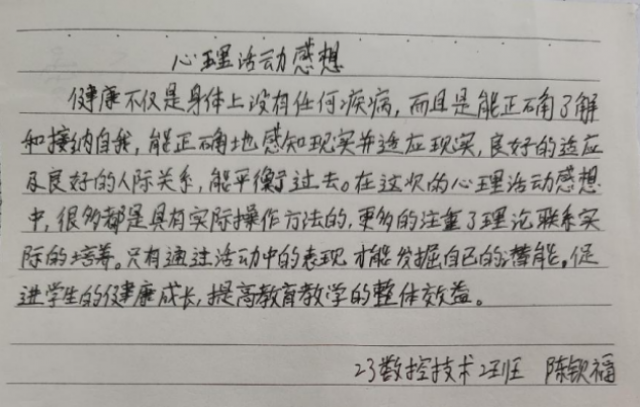 心理活动感想
健康不仅是身体上没有任何疾病，而且是能正确了解
和接纳自我，能正确地感知现实并适应现实，良好的适应
及良好的人际关系，能平衡过去。在这次的心理活动感想
中，很多都是具有实际操作方法的，更多的注重了理论联系实
际的培养。只有通过活动中的表现才能发掘自己的潜能。促
进学生的健康成长，提高教育教学的整体效益。
23数控技术2班 陈钦福